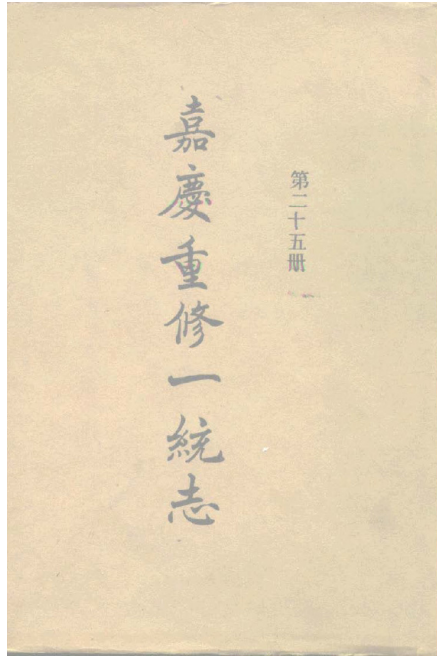 第二十五册
嘉慶重修一統志